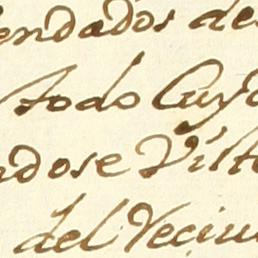 endados de
todo Cuyo
ndose Visto
del Vecin